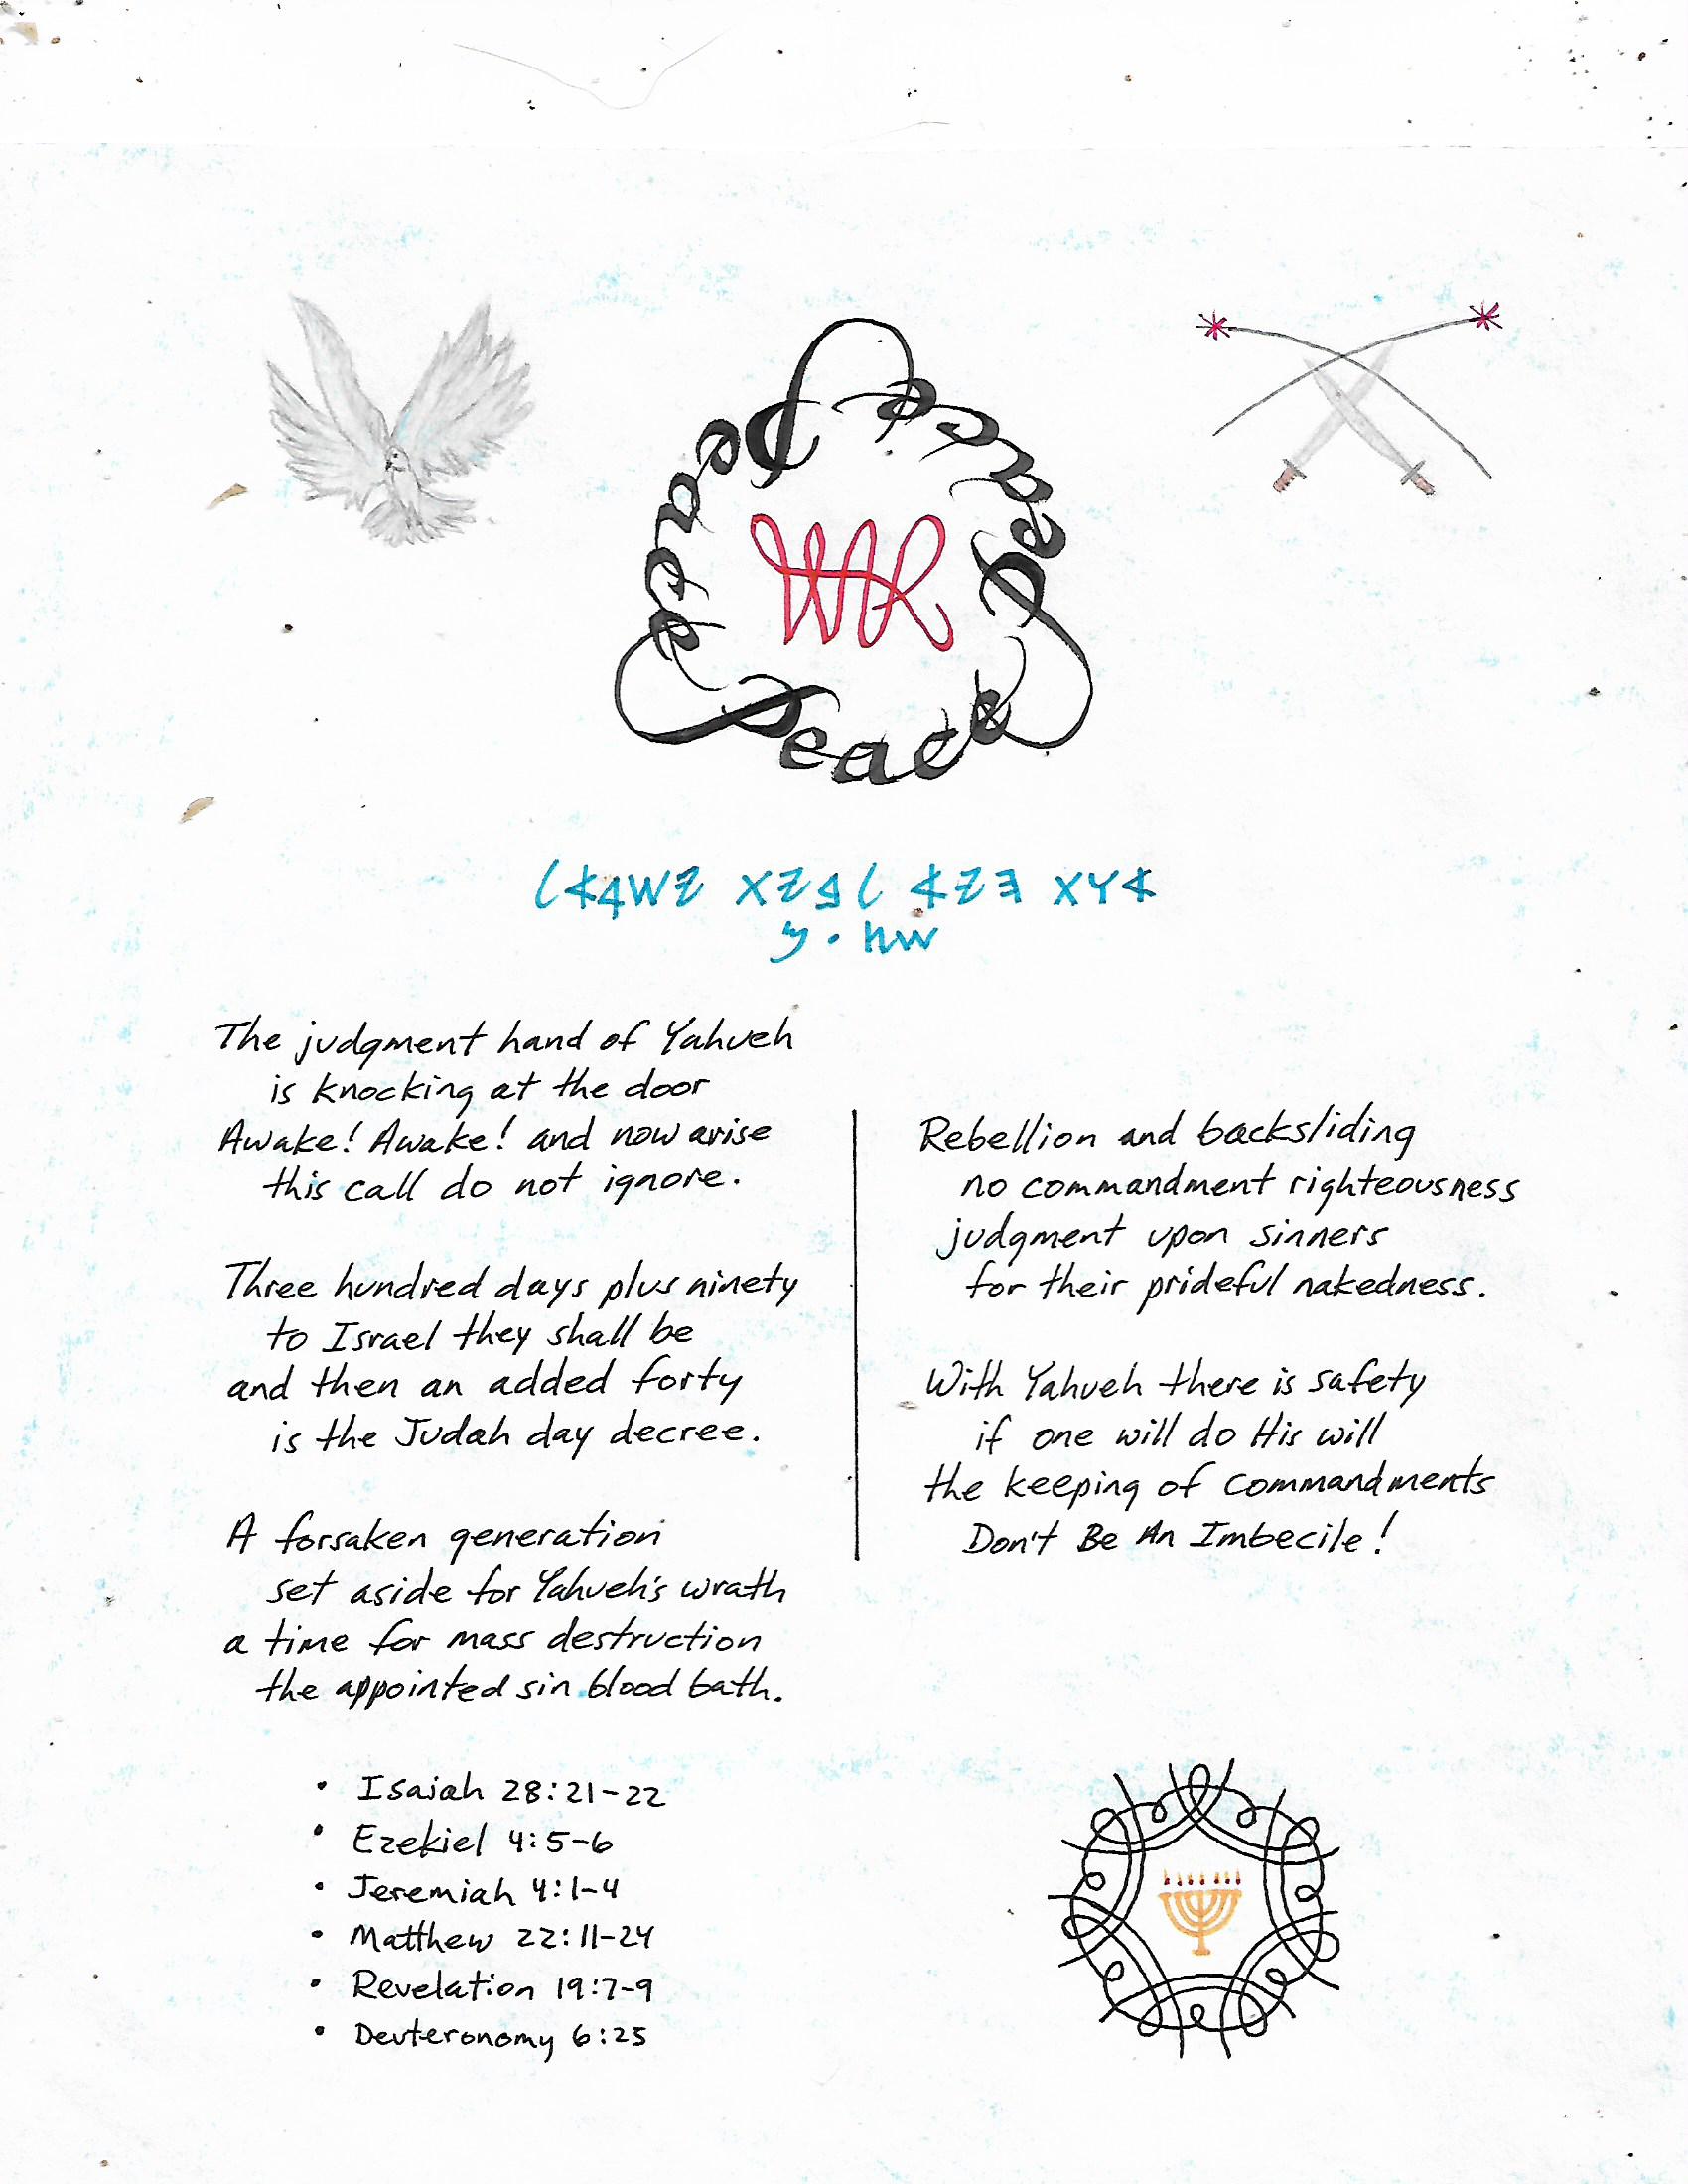 Peace Peace Peace
WAR
𐤀𐤅𐤕 𐤄𐤉𐤀 𐤋𐤁𐤉𐤕 𐤉𐤔𐤓𐤀𐤋
𐤔𐤑 · 𐤌
The judgment hand of Yahveh
is knocking at the door
Awake! Awake! and now arise
this call do not ignore.
Three hundred days plus ninety
to Israel they shall be
and then an added forty
is the Judah day decree.
A forsaken generation
set aside for Yahveh's wrath
a time for mass destruction
the appointed sin blood bath.
• Isaiah 28:21-22
• Ezekiel 4:5-6
• Jeremiah 4:1-4
• Matthew 22:11-24
• Revelation 19:7-9
• Deuteronomy 6:25
Rebellion and backsliding
no commandment righteousness
judgment upon sinners
for their prideful nakedness.
With Yahveh there is safety
if one will do His will
the keeping of commandments
Don't Be An Imbecile!